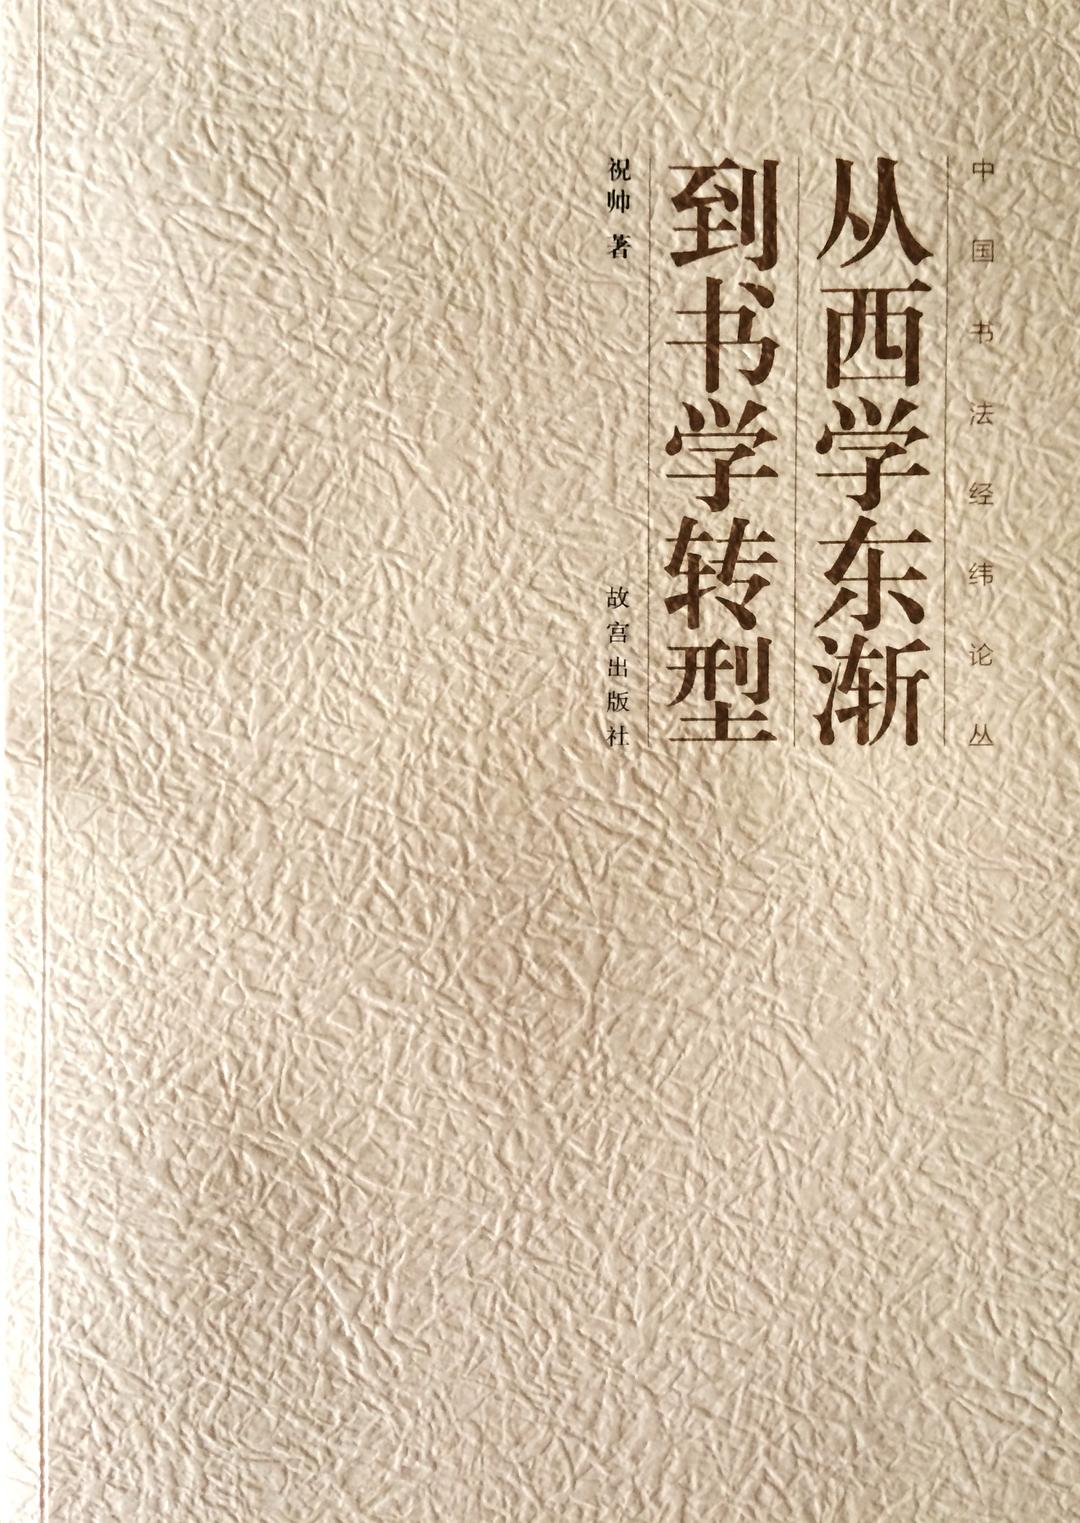 中国书法经纬论丛
从西学东渐
到书学转型
祝帅 著
故宫出版社